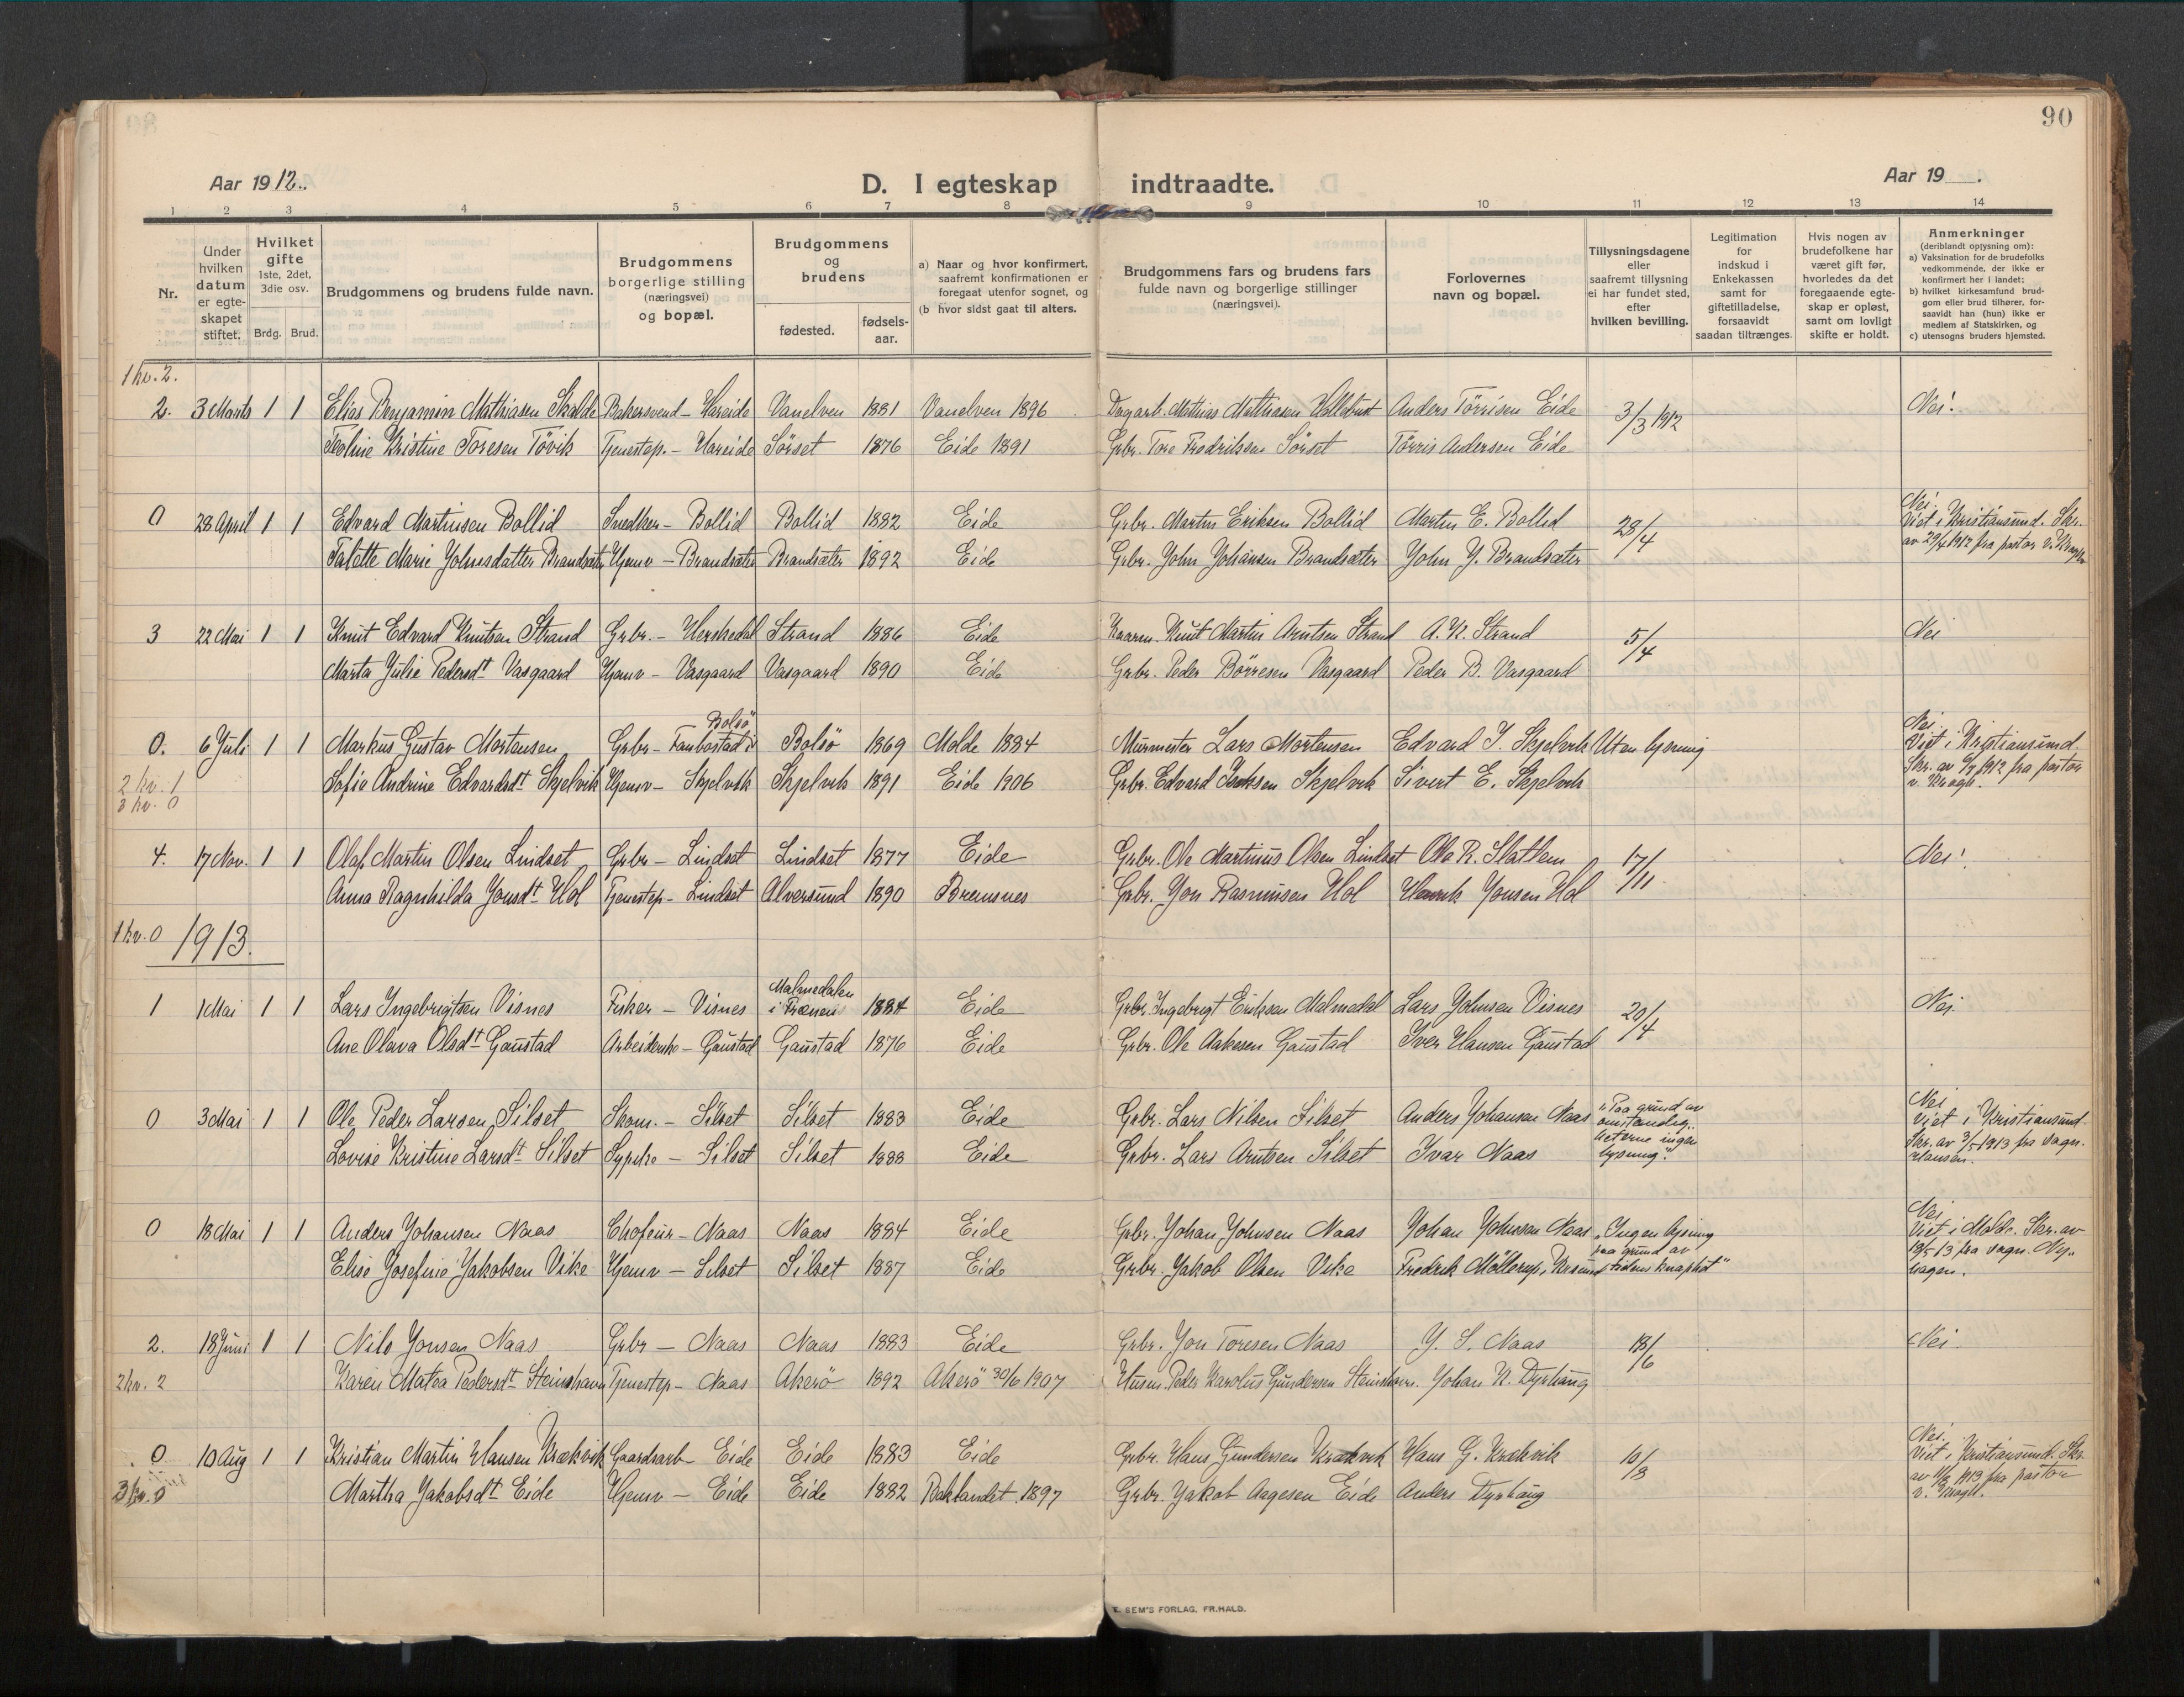 90
Aar 1912.
D. I egteskap indtraadte.
Aar 19 .
1 2 3 4 5 6 7 8 9 10 11 12 13 14
Nr.
Under hvilken datum er egte-skapet stiftet.
Hvilket gifte 1ste, 2det, 3die osv.
Brdg. Brud.
Brudgommens og brudens fulde navn.
Brudgommens borgerlige stilling (næringsvei) og bopæl.
Brudgommens og brudens
fødested.
fødsels-aar.
a) Naar og hvor konfirmert, saafremt konfirmationen er foregaat utenfor sognet, og
(b hvor sidst gaat til alters.
Brudgommens fars og brudens fars fulde navn og borgerlige stillinger (næringsvei).
Forlovernes navn og bopæl.
Tillysningsdagene eller saafremt tillysning ei har fundet sted, efter hvilken bevilling.
Legitimation for indskud i Enkekassen samt for giftetilladelse, forsaavidt saadan tiltrænges.
Hvis nogen av brudefolkene har været gift før, hvorledes da det foregaaende egte-skap er opløst, samt om lovligt skifte er holdt.
Anmerkninger (deriblandt opjysning om):
a) Vaksination for de brudefolks vedkommende, der ikke er konfirmert her i landet;
b) hvilket kirkesamfund brud-gom eller brud tilhører, for-saavidt han (hun) ikke er medlem af Statskirken, og
c) utensogns bruders hjemsted.
1 kv. 2.
2. 3 Marts 1 1 Elias Benjamin Mathiasen Skalde Bakersvend - Hareide Vanelven 1881 Vanelven 1896 Dagarb. Mathias Mathiasen Anders Törrisen Eide 3/3 1912 Nei.
Teoline Kristine Toresen Tövik Tjenestep. - Hareide Sörset 1876 Eide 1891 Grbr. Tore Fredriksen Sörset Törris Andersen Eide
0 28 April 1 1 Edvard Martinsen Bollid Snedker - Bollid Bollid 1882 Eide Grbr. Martin Eriksen Bollid Martin E. Bollid 28/4 Nei. Viet i Kristiansund. Skr. av 29/4 1912 fra pastor v. Krogh
Marie Johnsdatter Brandsæter Hjemv - Brandsæter Brandsæter 1892 Eide Grbr. John Johansen Brandsæter John J. Brandsæter
3 22 Mai 1 1 Knut Edvard Knutsen Strand Grbr. - Herskedal Strand 1886 Eide Kaarm. Knut Martin Arntsen Strand A. K. Strand 5/4 Nei
Marta Julie Pedersdt Vasgaard Hjemv - Vasgaard Vasgaard 1890 Eide Grbr. Peder Börresen Vasgaard Peder B. Vasgaard
0. 6 Juli 1 1 Markus Gustav Mortensen Grbr - Fanbostad i Bolsö Bolsö 1869 Molde 1884 Murmester Lars Mortensen Edvard I. Skjelvik Uten lysning Nei. Viet i Kristiansund. Skr. av 6/7 1912 fra pastor v. Krogh.
2 kv. 1
3 kv. 0
Sofie Andrine Edvardsdt Skjelvik Hjemv - Skjelvik Skjelvik 1891 Eide 1906 Grbr. Edvard Isaksen Skjelvik Sivert E. Skjelvik
4. 17 Nov. 1 1 Olaf Martin Olsen Lindset Grbr - Lindset Lindset 1877 Eide Grbr. Ole Martinus Olsen Lindset Ole R. Slatlem 17/11 Nei!
Anna Ragnhilda Jonsdt Hol Tjenestep - Lindset Alversund 1890 Bremsnes Grbr. Jon Rasmussen Hol Henrik Jonsen Hol
4 kv. 0 1913.
1 1 Mai 1 1 Lars Ingebrigtsen Visnes Fisker - Visnes Malmedalen i Frænen 1884 Eide Grbr. Ingebrigt Eriksen Malmedal Lars Johnsen Visnes 20/4 Nei.
Ane Olava Olsdt Gaustad Arbeidersk - Gaustad Gaustad 1876 Eide Grbr. Ole Aakesen Gaustad Iver Hansen Gaustad
0 3 Mai 1 1 Ole Peder Larsen Silset Skom. - Silset Silset 1883 Eide Grbr. Lars Nilsen Silset Anders Johansen Naas "Paa grund av omstændig-heterne ingen lysning." Nei Viet i Kristiansund. Skr. av 3/5 1913 fra vagn. Hansen.
Lovise Kristine Larsdt Silset Syerske - Silset Silset 1888 Eide Grbr. Lars Arntsen Silset Ivar Naas
0 18 Mai 1 1 Anders Johansen Naas Chofeur - Naas Naas 1884 Eide Grbr. Johan Johnsen Naas Johan Johnsen Naas "Ingen lysning paa grund av tidens knaphet" Nei Viet i Molde. Skr. av 18/5 13 fra vagn. Ny-hagen.
Elise Josefine Jakobsen Vike Hjemv - Silset Silset 1887 Eide Grbr. Jakob Olsen Vike Fredrik Möllerup, Krsund
2. 18 Juni 1 1 Nils Jonsen Naas Grbr - Naas Naas 1883 Eide Grbr. Jon Toresen Naas J. S. Naas 18/6 Nei.
2 kv. 2 Karen Matea Pedersdt Steinshavn Tjenestep - Naas Akerö 1892 Akerö 30/6 1907 Husm. Peder Karolus Gundersen Steinshavn. Johan K. Dyrhaug
0 10 Aug 1 1 Kristian Martin Hansen Krækvik Gaardsarb - Eide Eide 1883 Eide Grbr. Hans Gundersen Krækvik Hans G. Krækvik 10/8 Nei. Viet i Kristiansund. Skr. av 11/8 1913 fra pastor v. Krogh.
3 kv. 0 Martha Jakobsdt Eide Hjemv - Eide Eide 1882 Baklandet 1897 Grbr. Jakob Aagesen Eide Anders Dyrhaug
E. SEM'S FORLAG, FR.HALD.